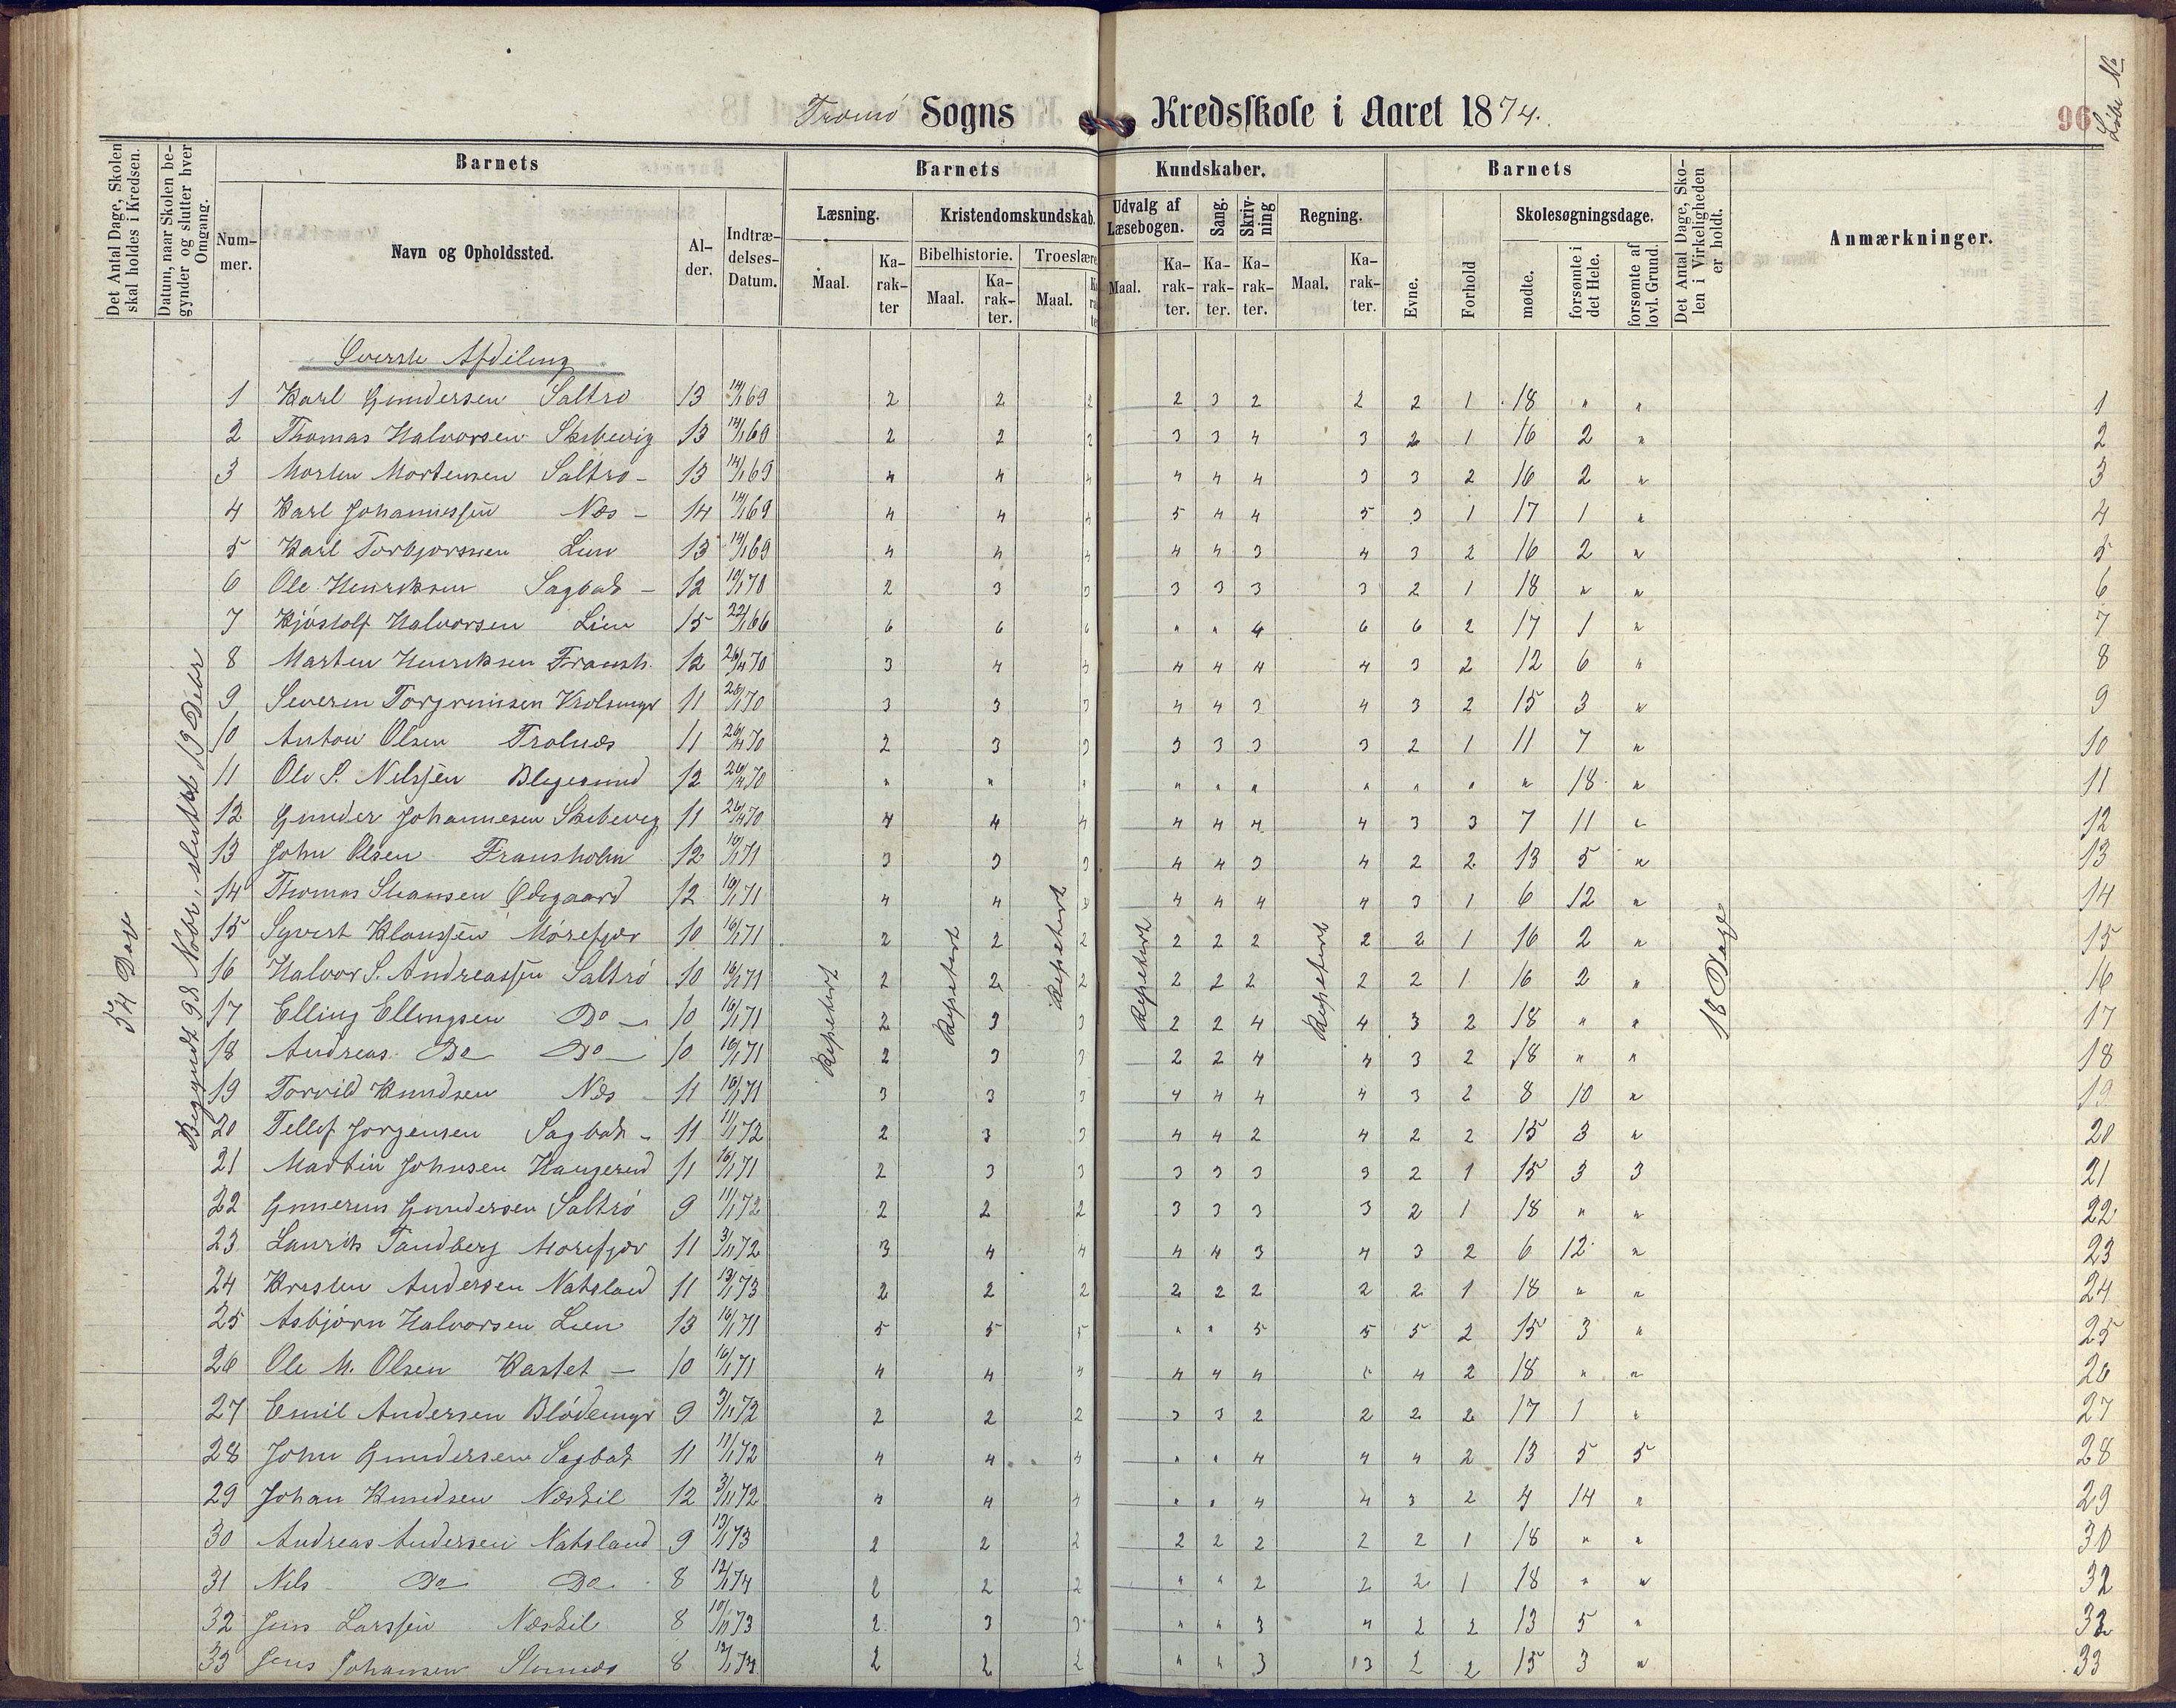 Tromø Sogns Kredsskole i Aaret 1874.
96
Løbe No
Det Antal Dage, Skolen skal holdes i Kredsen.
Datum, naar Skolen begynder og slutter hver Omgang.
Barnets
Nummer.
Navn og Opholdssted.
Alder.
Indtrædelses-Datum.
Barnets Kundskaber.
Læsning.
Maal.
Karakter
Kristendomskundskab.
Bibelhistorie.
Maal.
Karakter.
Troeslære
Maal.
Udvalg af Læsebogen.
Maal.
Karakter.
Sang.
Karakter.
Skrivning
Karakter.
Regning.
Maal.
Karakter.
Barnets
Evne.
Forhold
Skolesøgningsdage.
mødte.
forsømte i det Hele.
forsømte af lovl. Grund.
Det Antal Dage, Skolen i Virkeligheden er holdt.
Anmærkninger.
54 Dage
Begyndt 98 Novbr, sluttet 19 Debr
Repetert
Repetert
Repetert
Repetert
Repetert
18 Dage
Øverste Afdeling
1 Karl Gundersen Saltrø 13 14/1 69 2 2 2 2 3 2 2 2 1 18 " " 1
2 Thomas Halvorsen Skibevig 13 14/1 69 2 2 2 3 3 4 3 2 1 16 2 " 2
3 Morten Mortensen Saltrø - 13 14/1 69 4 4 4 4 4 4 3 3 2 16 2 " 3
4 Karl Johannessen Næs - 14 14/1 69 4 4 4 5 4 4 5 3 1 17 1 " 4
5 Karl Torbjørnsen Lien 13 14/1 69 4 4 4 4 4 3 4 3 2 16 2 " 5
6 Ole Henriksen Sagbak - 12 10/1 70 2 3 3 3 3 3 3 2 1 18 " " 6
7 Kjøstolf Halvorsen Lien 15 22/1 66 6 6 6 " " 4 6 6 2 17 1 " 7
8 Marten Henriksen Fransh. 12 26/4 70 3 4 4 4 4 4 4 3 2 12 6 " 8
9 Severin Torgrimsen 11 70 3 3 3 4 4 3 4 3 2 15 3 " 9
10 Anton Olsen Trolnæs 11 26/4 70 2 3 3 3 3 3 3 2 1 11 7 " 10
11 Ole S. Nilssen 12 26/4 70 " " " " " " " " " " 18 " 11
12 Gunder Johannesen Skibevig 11 26/4 70 4 4 4 4 4 4 4 3 3 7 11 " 12
13 John Olsen Fransholm 12 16/1 71 3 3 3 4 4 3 4 2 2 13 5 " 13
14 Thomas Ødegaard 12 16/1 71 4 4 4 4 4 4 3 1 6 12 " 14
15 Syvert Klaussen Mørefjær 10 16/1 71 2 2 2 2 2 2 2 2 1 16 2 " 15
16 Halvor S. Andreassen Saltrø 10 16/1 71 2 2 2 2 2 2 2 2 1 16 2 " 16
17 Elling Ellingsen Do - 10 16/1 71 2 3 3 2 2 4 4 3 2 18 " " 17
18 Andreas Do Do 10 16/1 71 2 3 3 2 2 4 4 3 2 18 " " 18
19 Torvild Knudsen Næs - 11 16/1 71 3 3 3 4 4 4 4 3 2 8 10 " 19
20 Tellef Jørgensen Sagbak - 11 11/1 72 2 3 3 4 4 2 4 2 2 15 3 " 20
21 Martin Johnsen Haugerud 11 16/1 71 2 3 3 3 3 3 3 2 1 15 3 3 21
22 Gunerius Gundersen Saltrø 9 11/1 72 2 2 2 3 3 3 3 2 1 18 " " 22
23 Laurits Tandberg Morefjær 11 3/11 72 3 4 4 4 4 3 4 3 2 6 12 " 23
24 Kristen Andersen Natsland 11 13/1 73 2 2 2 2 2 2 2 2 1 18 " " 24
25 Asbjørn Halvorsen Lien 13 16/1 71 5 5 5 " " 5 5 5 2 15 3 " 25
26 Ole M. Olsen Kastet - 10 16/1 71 4 4 4 4 4 4 4 2 18 " " 26
27 Emil Andersen Blødemyr 9 3/11 72 2 2 2 3 3 2 2 2 2 17 1 " 27
28 John Gundersen Sagbak 11 11/1 72 4 4 4 " " 4 4 4 2 13 5 5 28
29 Johan Knudsen Næskil 12 3/11 72 4 4 4 " " 4 4 3 2 4 14 " 29
30 Andreas Andersen Natsland 9 13/1 73 2 2 2 2 2 2 2 2 1 18 " " 30
31 Nils Do Do 8 12/1 74 2 2 2 " " 2 2 2 1 18 " " 32
32 Jens Larssen Næskil 8 10/11 73 2 3 3 " " 3 4 2 2 13 5 " 32
33 Jens Johansen 8 12/1 74 2 2 2 " " 3 3 2 2 15 3 " 33